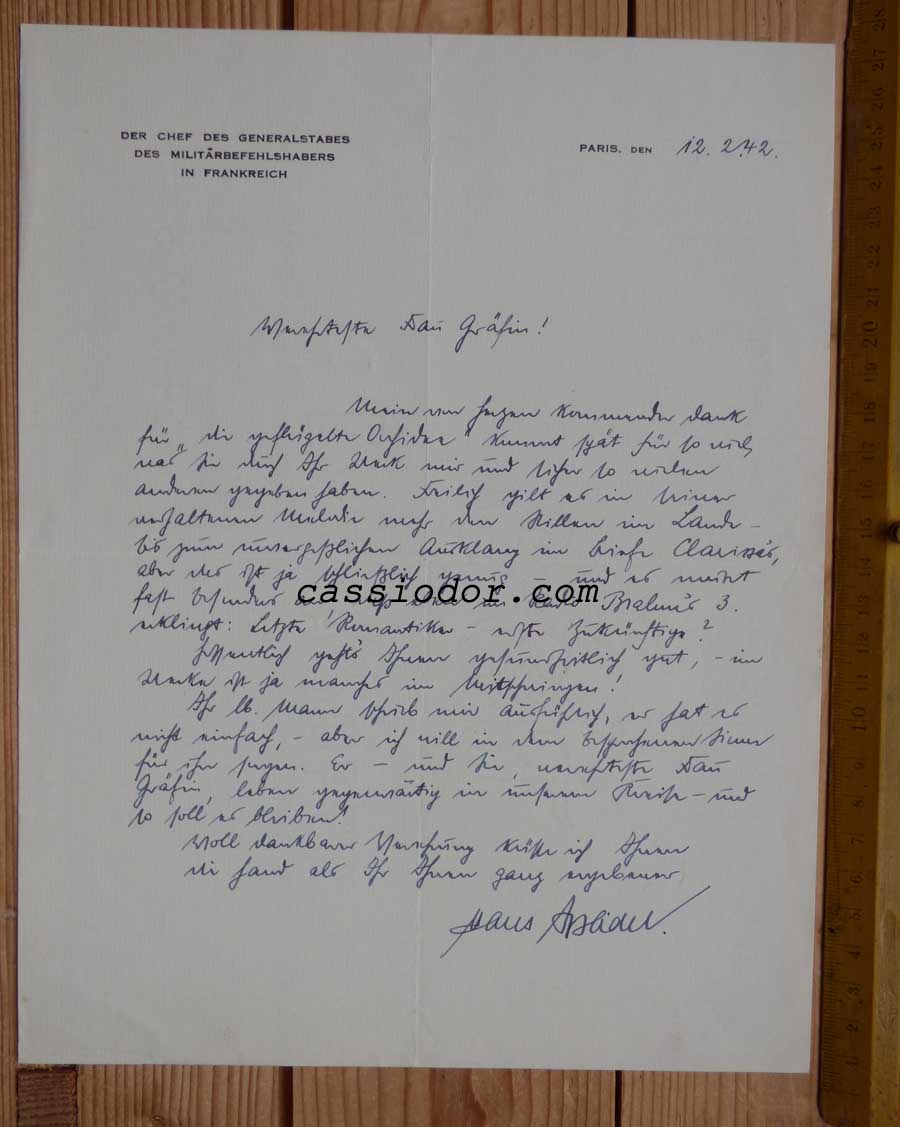 DER CHEF DES GENERALSTABES
DES MILITÄRBEFEHLSHABERS
IN FRANKREICH
PARIS, DEN 12. 2. 42.
Verehrteste Frau Gräfin!
Mein von Herzen kommender Dank
für „die geflügelte Orchidee" kommt spät für so viel,
was Sie durch Ihr Werk mir und sicher so vielen
anderen gegeben haben. Freilich gilt es in seiner
verhaltenen Melodie mehr den Stillen im Lande –
bis zum unvergeßlichen Ausklang im Briefe Clarissa's,
aber das ist ja schließlich genug – und es
fast besonders Radio Brahms 3.
erklingt: Letzte Romantiker – erste Zukünftige?
Hoffentlich geht's Ihnen gesundheitlich gut, – im
Werke ist ja manches im Mitschwingen!
Ihr lb. Mann schrieb mir ausführlich, er hat es
nicht einfach, – aber ich will in dem besprochenen Sinne
für ihn sorgen. Er – und Sie, verehrteste Frau
Gräfin, leben gegenwärtig in unserem Kreise – und
so soll es bleiben!
Voll dankbarer Verehrung küsse ich Ihnen
die Hand als Ihr Ihnen ganz ergebener
Hans Speidel.
cassiodor.com
1 2 3 4 5 6 7 8 9 10 11 12 13 14 15 16 17 18 19 20 21 22 23 24 25 26 27 28